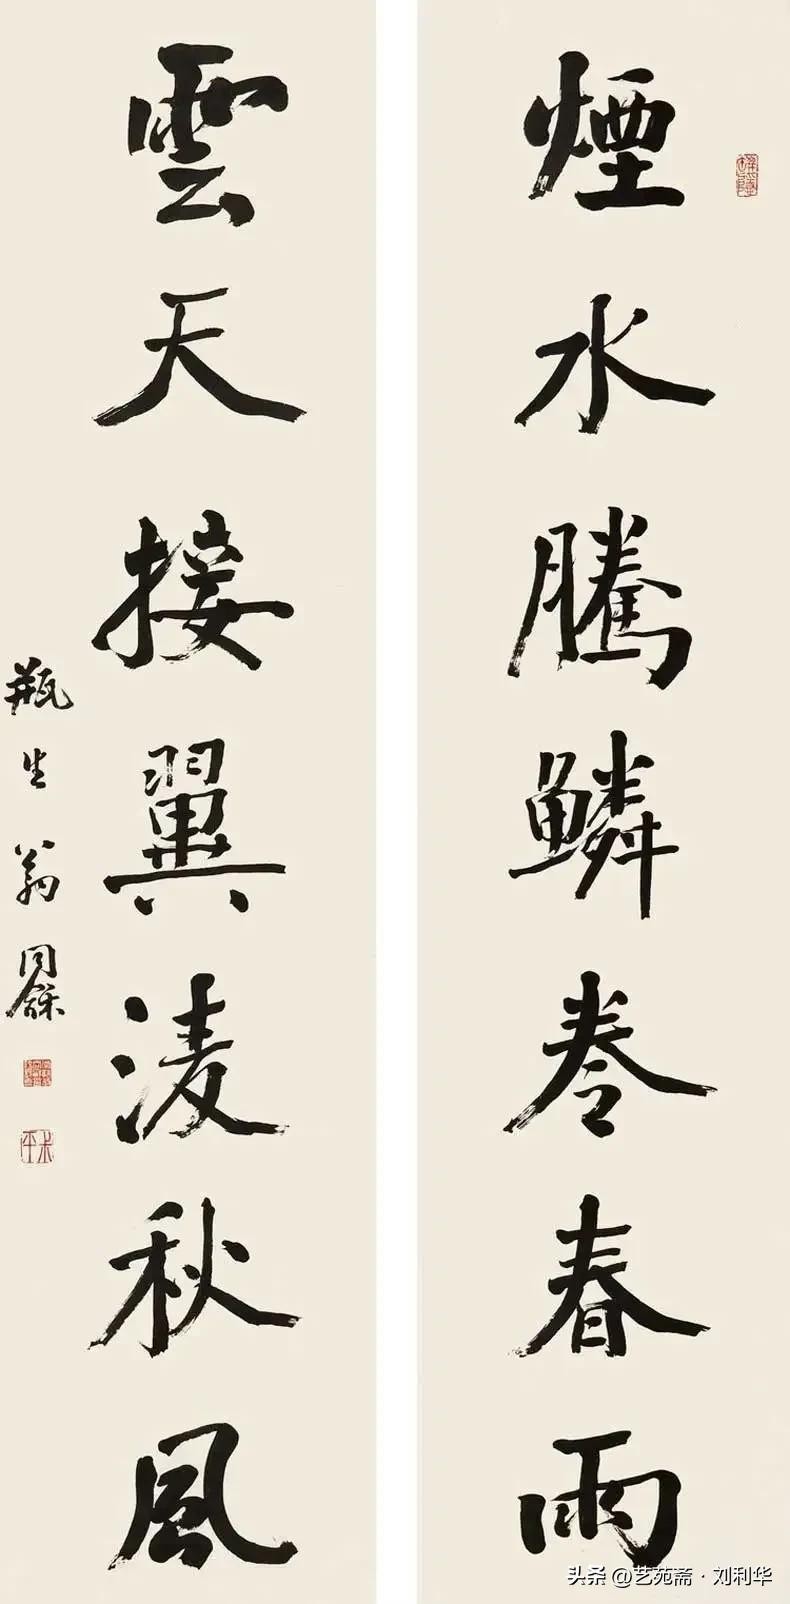 煙水騰鱗卷春雨
雲天接翼淩秋風
瓶生翁同龢
头条 @艺苑斋·刘利华